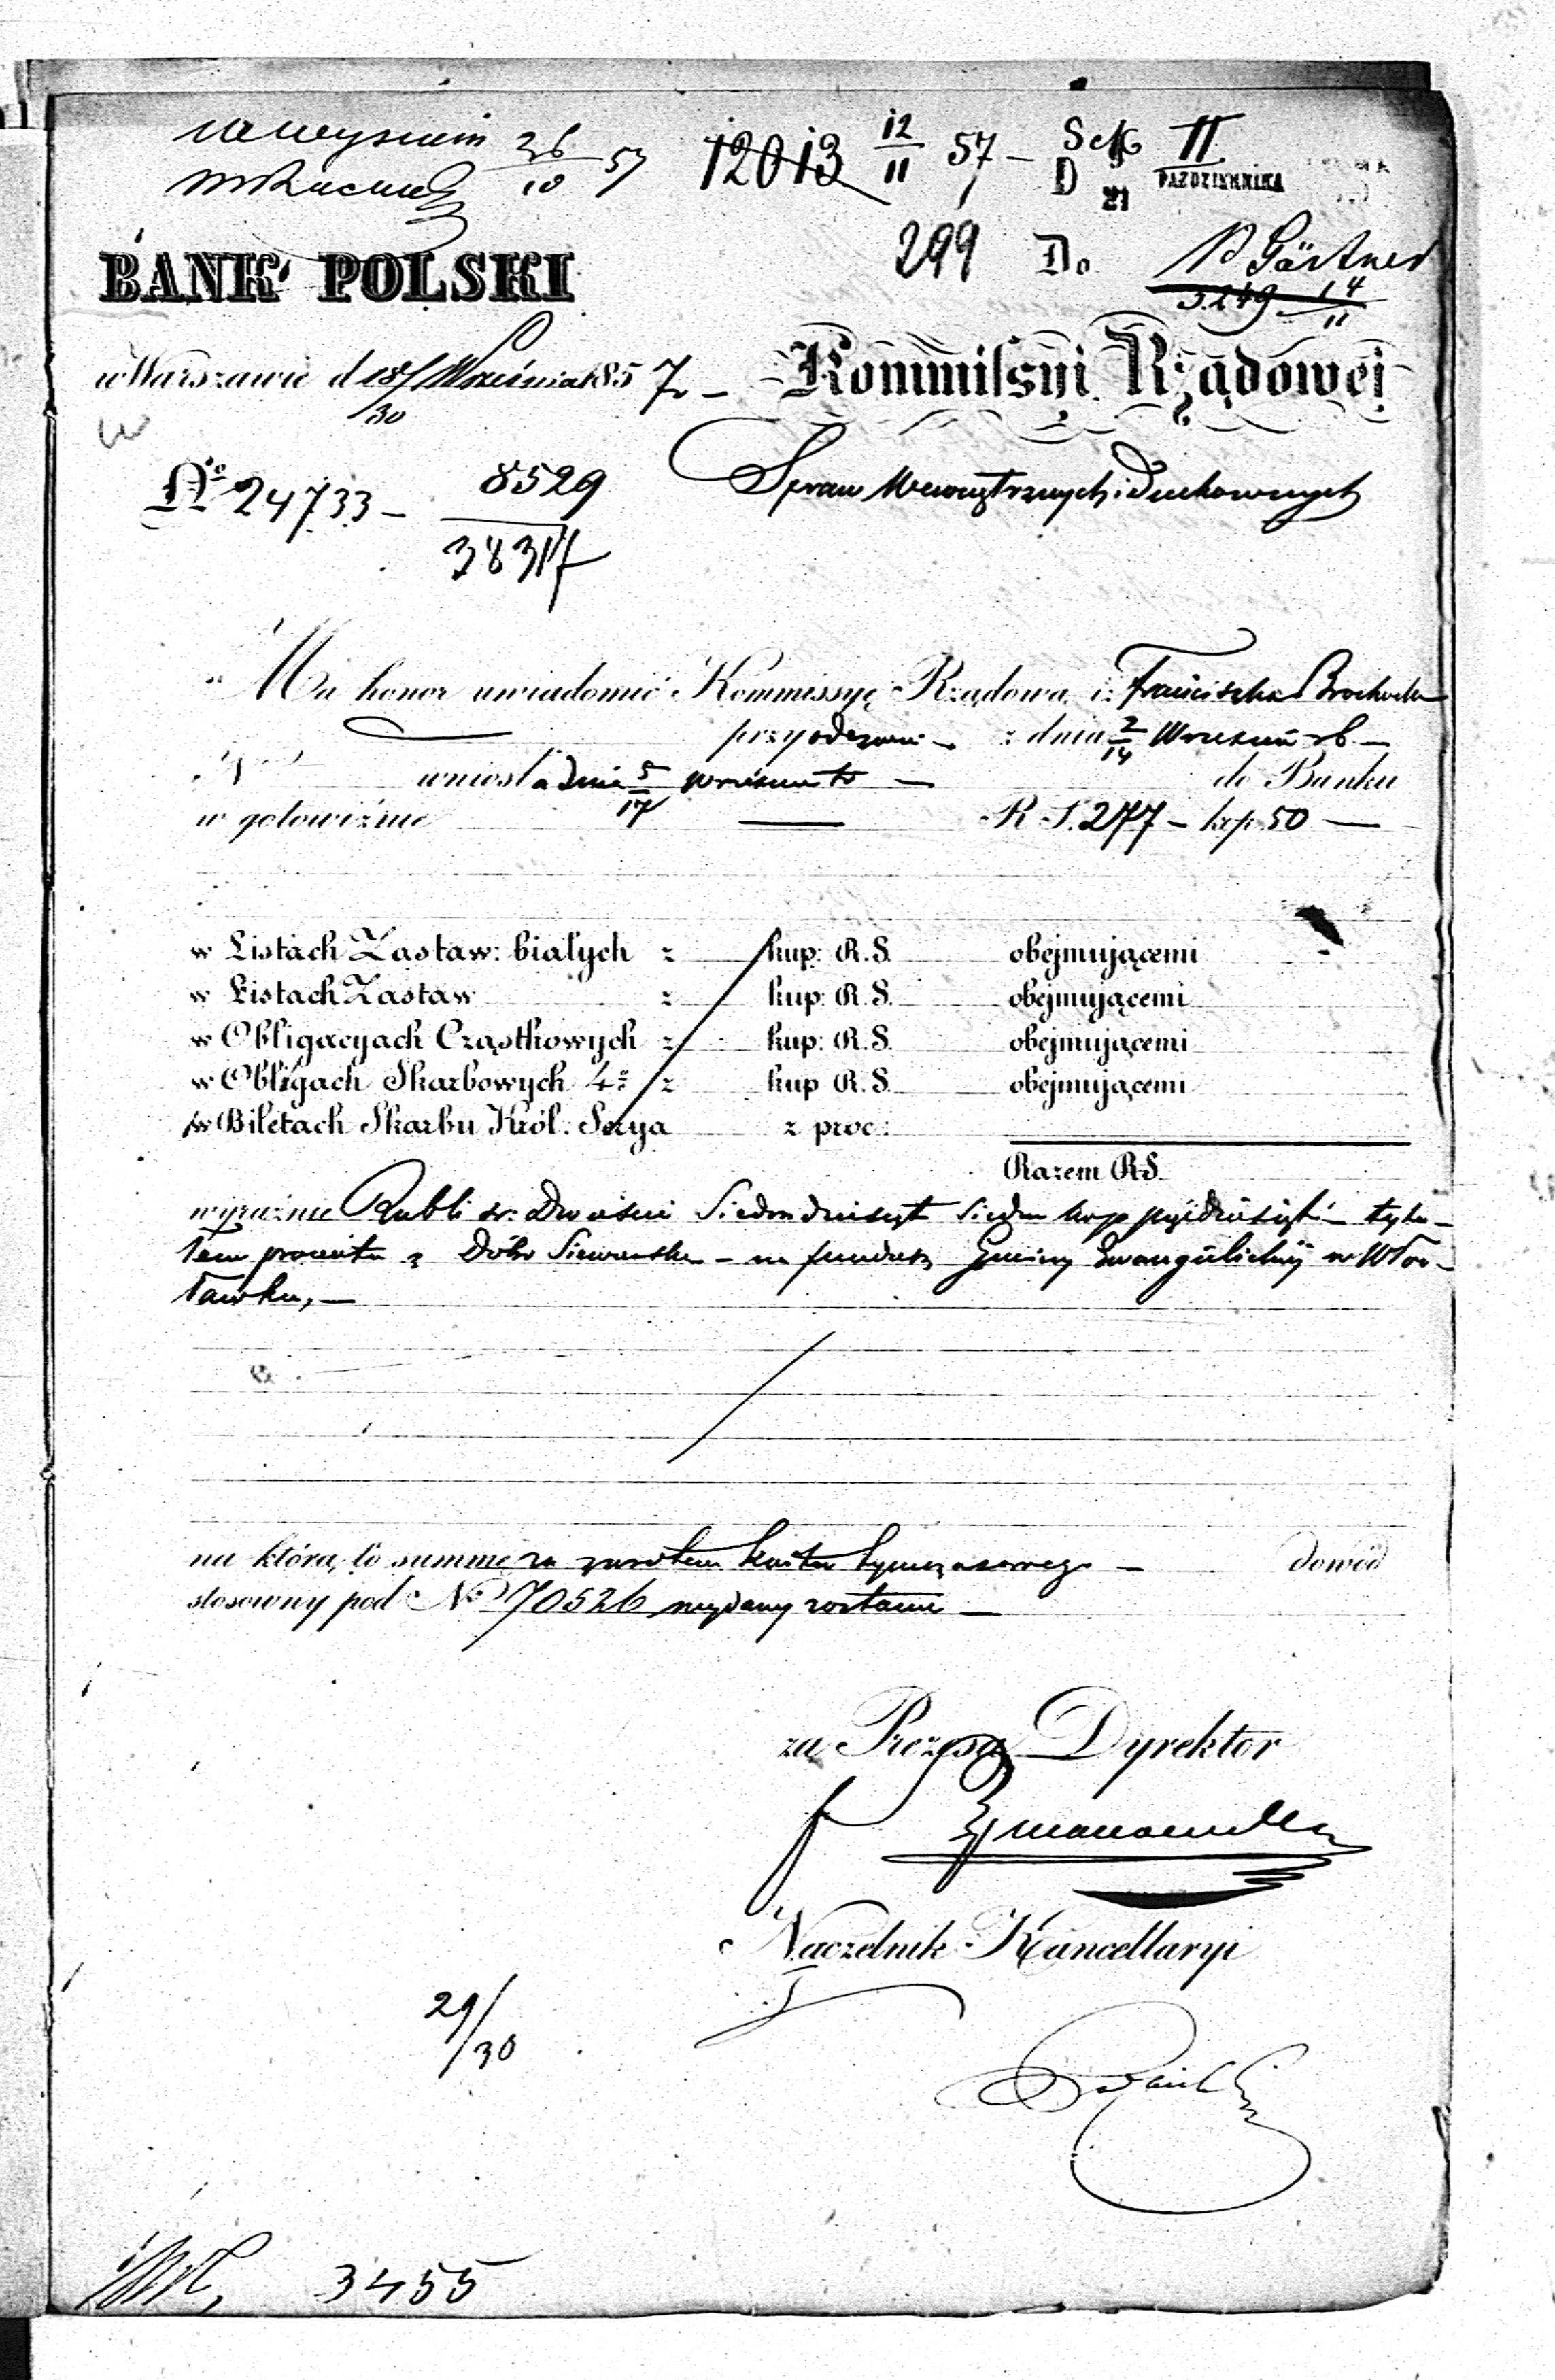 26/10 57 12013 12/11 57 – Sek II
D 21 PAŹDZIERNIKA
BANK POLSKI
299 Do P Gärtner
5249 14/11
w Warszawie d 18/30 Września 1857 –
Kommissyi Rządowej
No 24733 – 8529/38317
Spraw Wewnętrznych i Duchownych
Ma honor uwiadomić Kommissyę Rządową, iż Franciszka Brochocka
przy odezwie – z dnia 2/14 Wrześni rb –
N wniosła dnia 5/17 września tr – do Banku
w gotowiźnie — R S. 277 – kop. 50 —
w Listach Zastaw: białych z kup: R.S. obejmującemi
w Listach Zastaw z kup: R.S. obejmującemi
w Obligacyach Cząstkowych z kup: R.S. obejmującemi
w Obligach Skarbowych 4% z kup R.S. obejmującemi
w Biletach Skarbu Król: Serya z proc:
Razem RS.
wyraźnie Rubli sr: Dwieście Siedmdziesiąt siedm kop pięćdziesiąt – tytu-
łem procentu z Dóbr – na fundusz Gminy Ewangelickiej w Wło-
cławku, —
na którą to summę za zwrotem kwitu tymczasowego — dowód
stosowny pod No 70526 wydany zostanie —
za Prezesa Dyrektor
Naczelnik Kancellaryi
29/30
3455